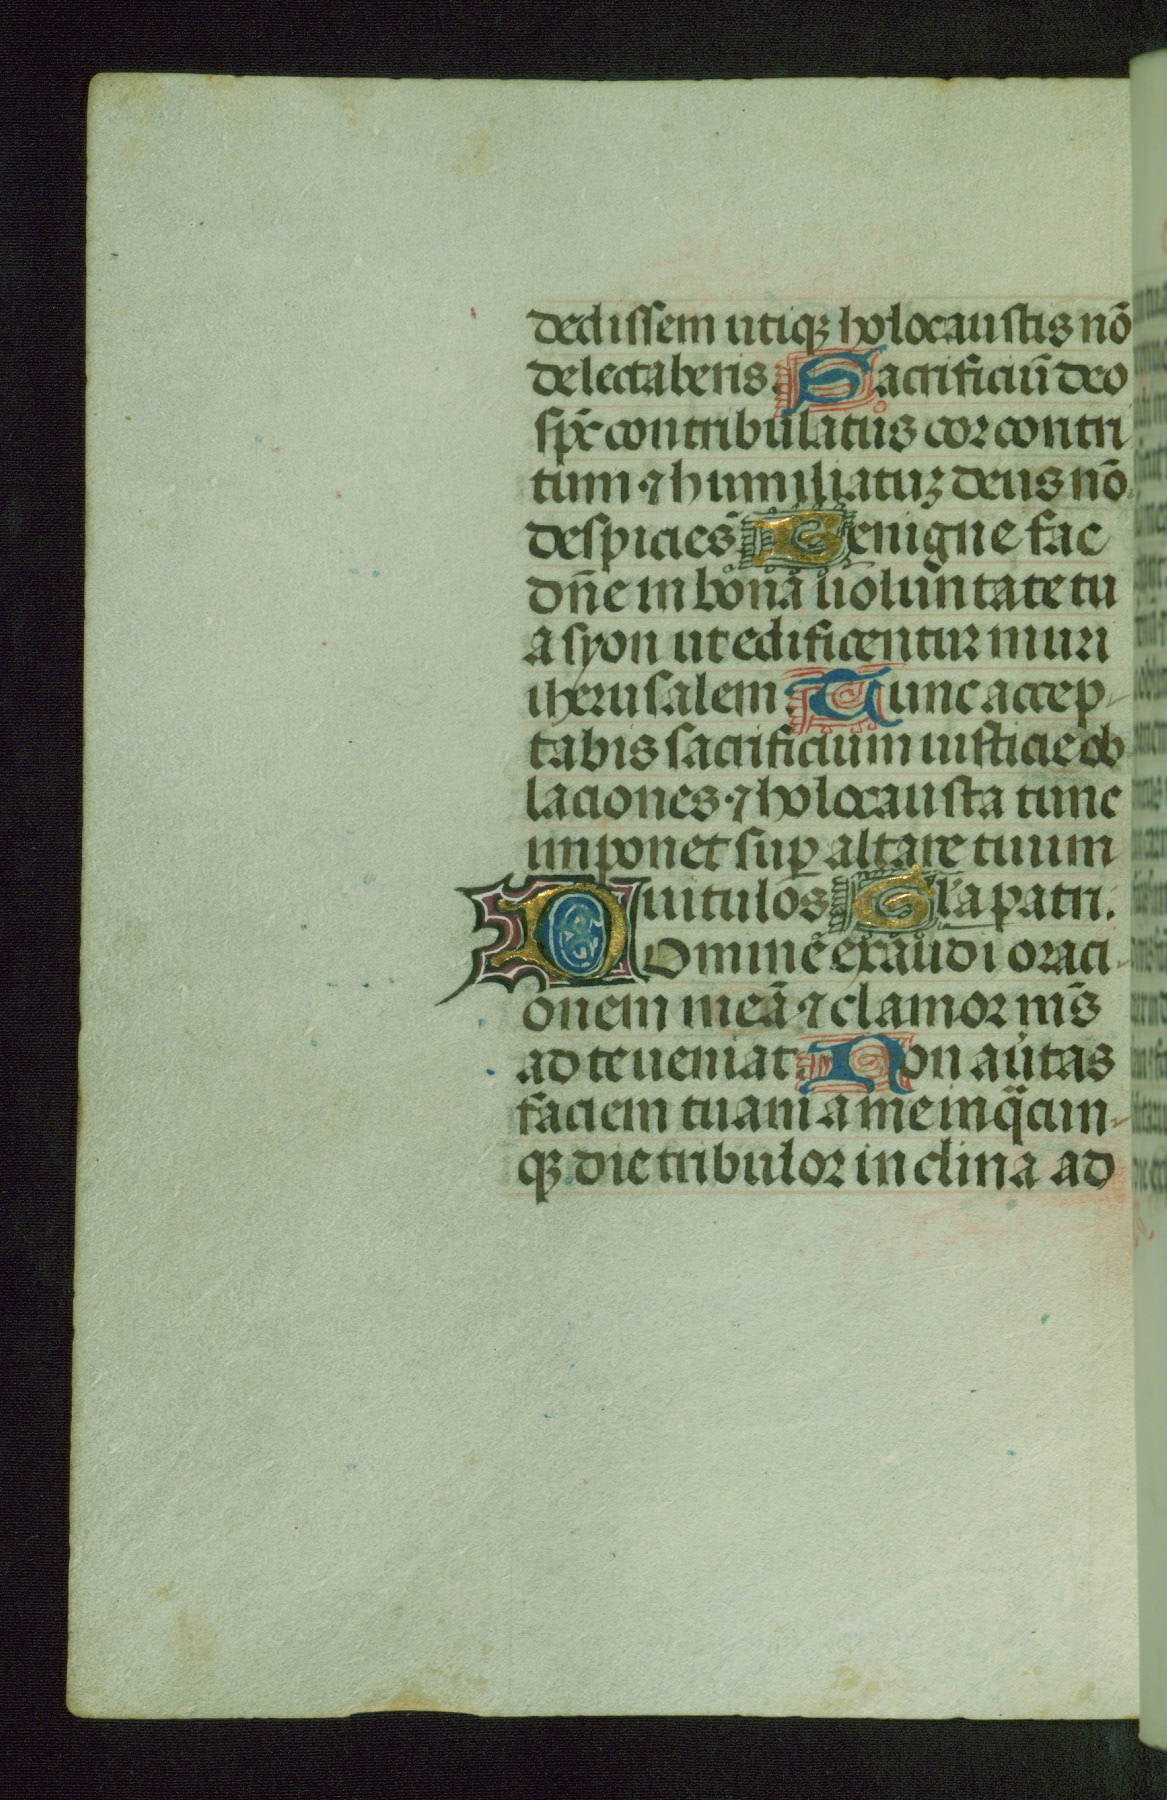 dedissem utiqꝫ holocaustis nō
delectaberis. Sacrificiū deo
sp̄c contribulatus cor contri
tum ⁊ humiliatuꝫ deus nō
despicies̄ Benigne fac
dn̄e in bonā uoluntate tu
a syon ut edificentur muri
iherusalem. Tunc accep-
tabis sacrificium iusticie ob
laciones ⁊ holocausta tunc
imponet suꝑ altare tuum
uitulos Gl̄a patri.
Domine exaudi oraci-
onem meā ⁊ clamor m̄s
ad te ueniat. Non au̾tas
faciem tuam a me in qͣcun-
qꝫ die tribulor inclina ad